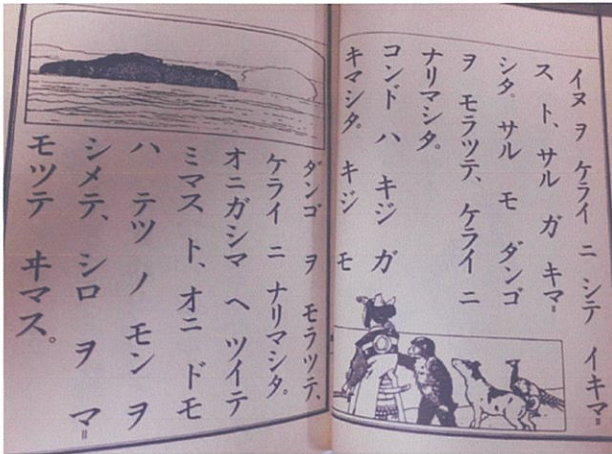 イヌ ヲ ケライ ニ シテ イキマ=
ス ト、サル ガ キマ=
シタ。サル モ ダンゴ
ヲ モラツテ、ケライ ニ
ナリマシタ。
コンド ハ キジ ガ
キマシタ。キジ モ
ダンゴ ヲ モラツテ、
ケライ ニ ナリマシタ。
オニガシマ ヘ ツイテ
ミマス ト、オニ ドモ
ハ テツ ノ モン ヲ
シメテ、シロ ヲ マ=
モツテ ヰマス。